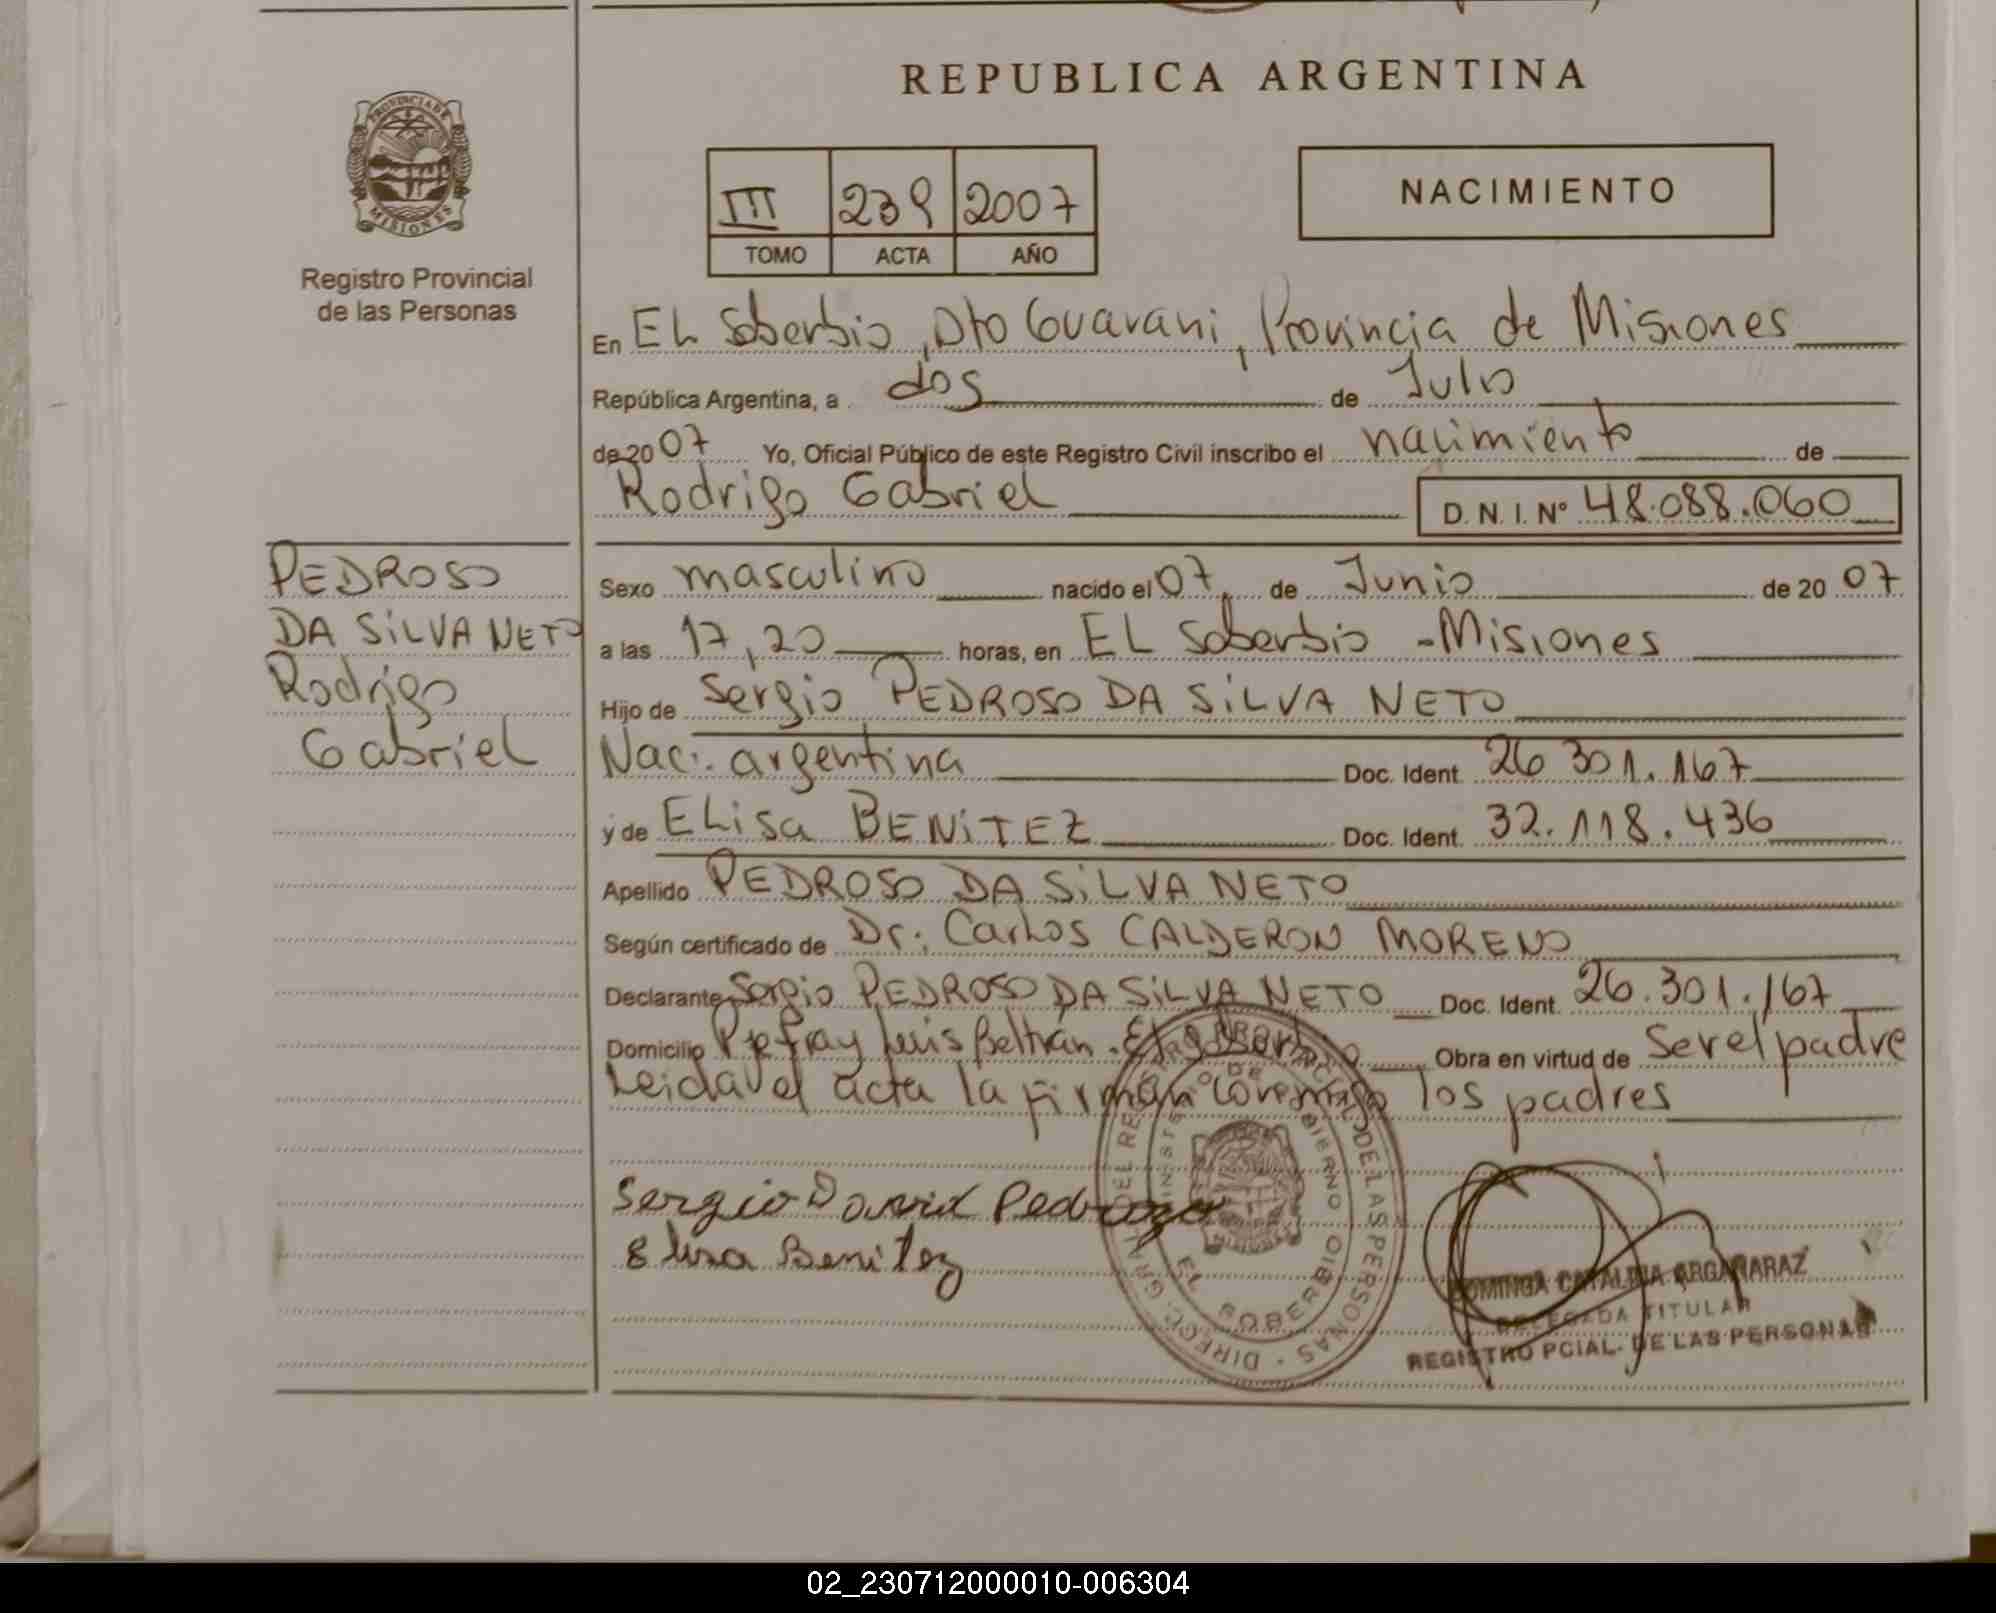 REPUBLICA ARGENTINA
PROVINCIA DE
MISIONES
Registro Provincial
de las Personas
III 239 2007
TOMO ACTA AÑO
NACIMIENTO
En EL Soberbio, Dto Guarani, Provincia de Misiones
República Argentina, a dos de Julio
de 2007 Yo, Oficial Público de este Registro Civil inscribo el nacimiento de
Rodrigo Gabriel D. N. I. Nº 48.088.060
PEDROSO
DA SiLVA NETO
Rodrigo
Gabriel
Sexo masculino nacido el 07 de Junio de 20 07
a las 17,20 horas, en EL Soberbio - Misiones
Hijo de Sergio PEDROSO DA SiLVA NETO
Nac: argentina Doc. Ident. 26 301.167
y de ELisa BENiTEZ Doc. Ident. 32.118.436
Apellido PEDROSO DA SiLVA NETO
Según certificado de Dr: Carlos CALDERON MORENO
Declarante Sergio PEDROSO DA SiLVA NETO Doc. Ident. 26.301.167
Domicilio fray Luis Beltrán. El Soberbio Obra en virtud de Ser el padre
Leida el acta la firman conmigo los padres
Sergio David Pedrozo
Elisa Benitez
DIREC. GRAL. DEL REGISTRO PCIAL. DE LAS PERSONAS
MINISTERIO DE GOBIERNO
EL SOBERBIO
DOMINGA CATALINA ARGAÑARAZ
DELEGADA TITULAR
REGISTRO PCIAL. DE LAS PERSONAS
02_230712000010-006304